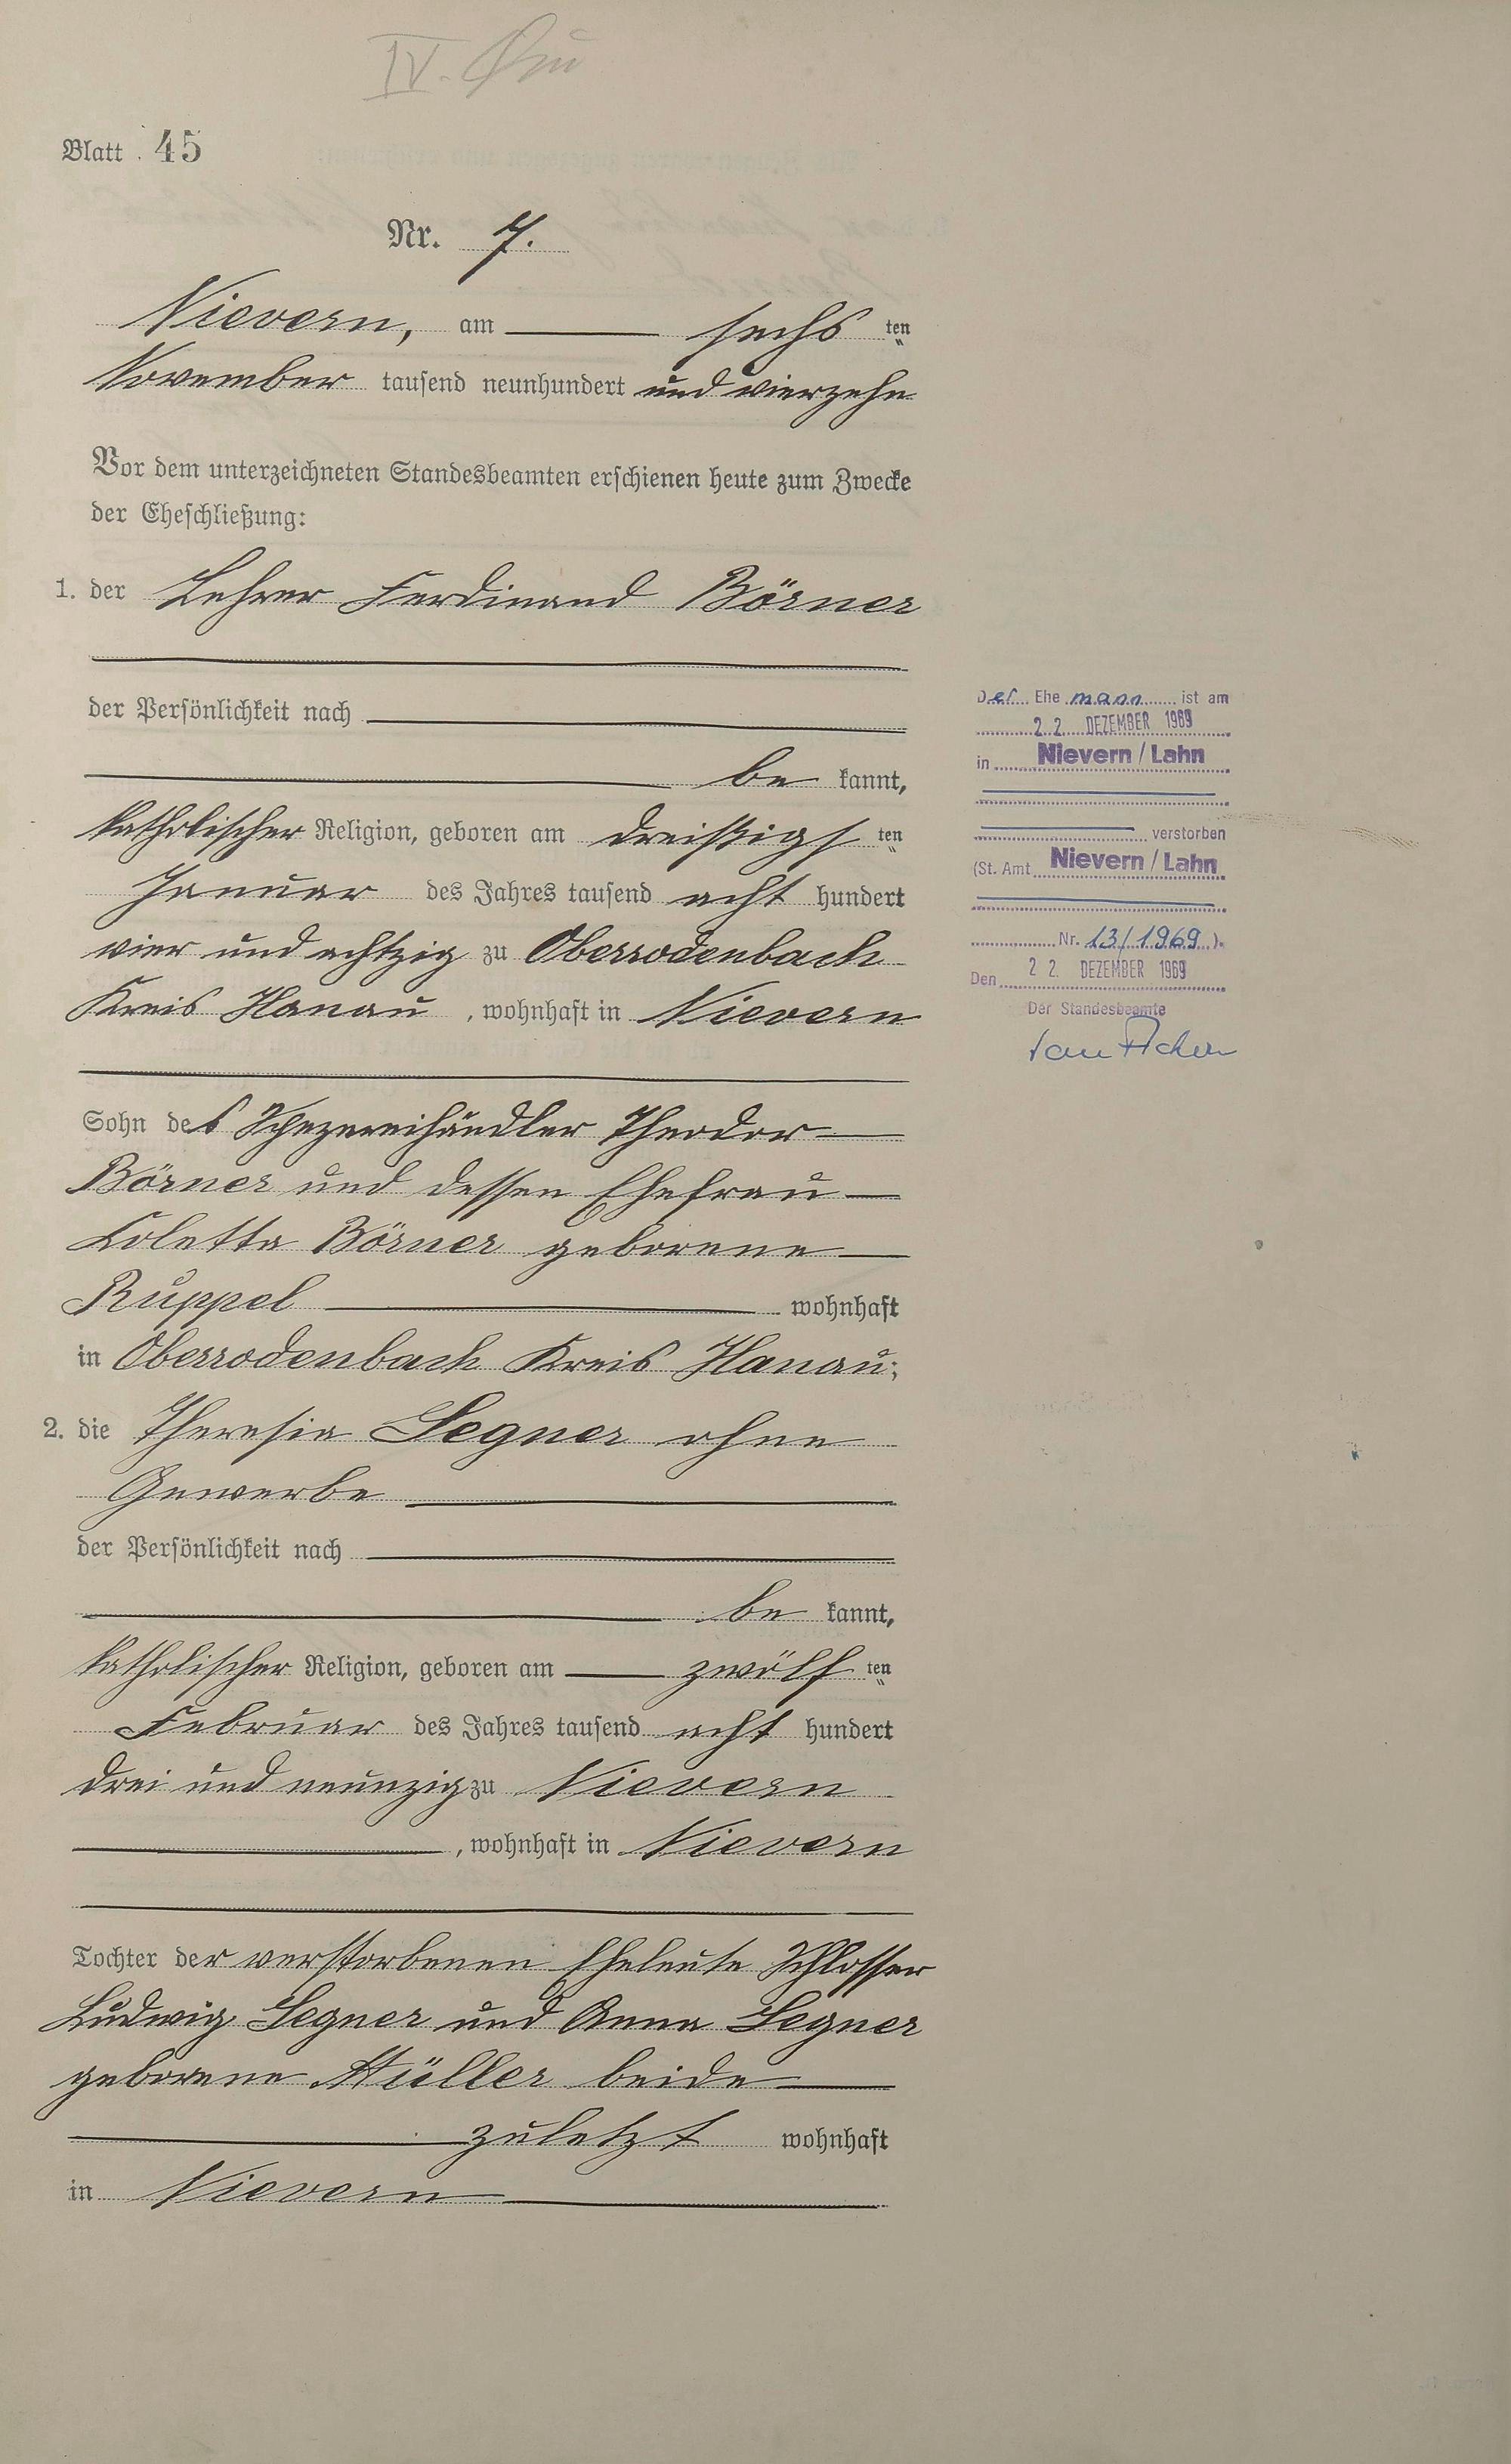 IV.
Blatt 45
Nr. 7.
Nievern, am sechs ten
November tausend neunhundert und vierzehn
Vor dem unterzeichneten Standesbeamten erschienen heute zum Zwecke
der Eheschließung:
1. der Lehrer Ferdinand Börner
der Persönlichkeit nach
be kannt,
katholischer Religion, geboren am dreißigs ten
Januar des Jahres tausend acht hundert
vier und achtzig zu Oberrodenbach
Kreis Hanau, wohnhaft in Nievern
Sohn des Spezereihändler Theodor
Börner und dessen Ehefrau
Koletta Börner geborene
Ruppel wohnhaft
in Oberrodenbach Kreis Hanau;
2. die Theresia Segner ohne
Gewerbe
der Persönlichkeit nach
be kannt,
katholischer Religion, geboren am zwölf ten
Februar des Jahres tausend acht hundert
drei und neunzig zu Nievern
, wohnhaft in Nievern
Tochter der verstorbenen Eheleute Schlosser
Ludwig Segner und Anna Segner
geborene Müller beide
zuletzt wohnhaft
in Nievern
Der Ehe mann ist am
22. DEZEMBER 1969
in Nievern/Lahn
verstorben
(St. Amt Nievern/Lahn
Nr. 13/1969).
Den 22. DEZEMBER 1969
Der Standesbeamte